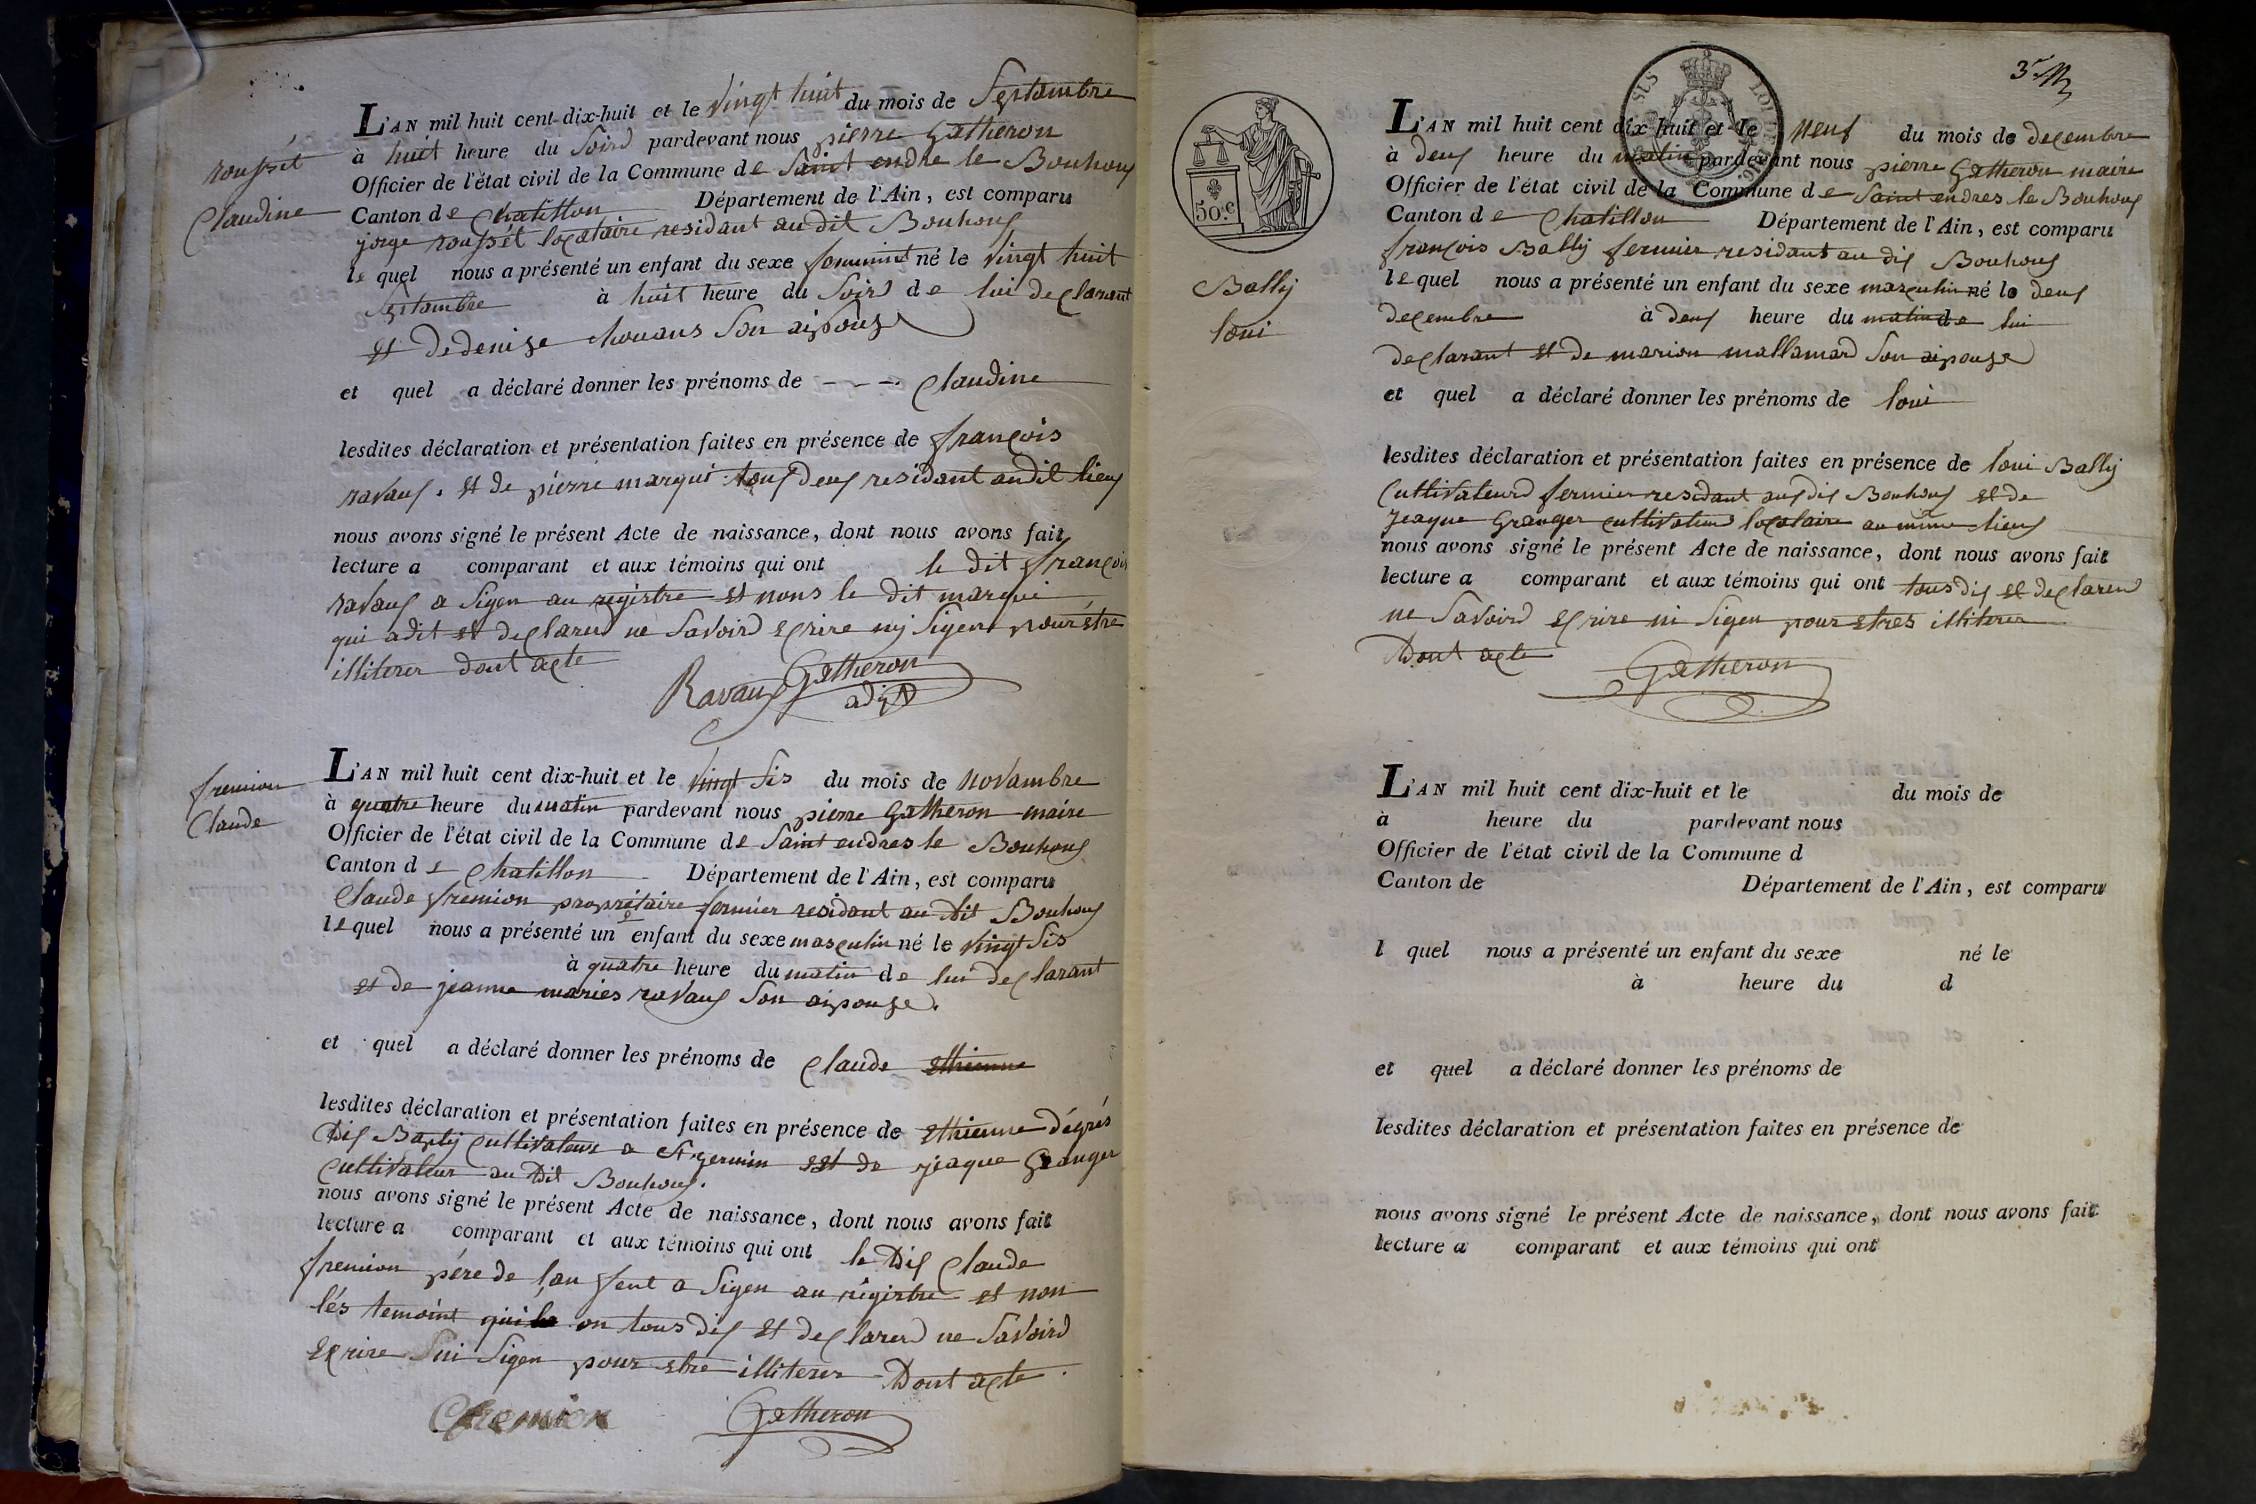 L'AN mil huit cent dix-huit et le vingt huit du mois de Septambre
à huit heure du Soird pardevant nous pierre Gatheron
Officier de l'état civil de la Commune de Saint endre le Bouhouf
Canton de Chatillon Département de l'Ain, est comparu
jorge roupét locataire residant audit Bouhouf
le quel nous a présenté un enfant du sexe feminint né le vingt huit
Septambre à huit heure du Soird de lui declarant
et de denise chouans Son aipouse
et quel a déclaré donner les prénoms de - - - Claudine
lesdites déclaration et présentation faites en présence de françois
ravauf. et de pierre marqui touf deuf residant audit lieuf
nous avons signé le présent Acte de naissance, dont nous avons fait
lecture a comparant et aux témoins qui ont le dit françois
ravauf a Sigen au registre et nons le dit marqui
qui a dit et declareu ne Savoird ecrire ny Sigen pour étre
illiterer dont acte
Ravaux Gatheron
roupét
Claudine
L'AN mil huit cent dix-huit et le vingt Sis du mois de novambre
à quatre heure du matin pardevant nous pierre Gatheron maire
Officier de l'état civil de la Commune de Saint endres le Bouhouf
Canton de Chatillon Département de l'Ain, est comparu
Claude fremion propriétaire fermier residant au dit Bouhouf
le quel nous a présenté un enfant du sexe masculin né le vingt Sis
à quatre heure du matin de lui declarant
et de jeanne maries ravauf Son aipouse.
et quel a déclaré donner les prénoms de Claude ethienne
lesdites déclaration et présentation faites en présence de ethienne dégrés
dif Baptij Cultivateur a St. germin est de jeaque Granger
Cultivateur au dit Bouhouf.
nous avons signé le présent Acte de naissance, dont nous avons fait
lecture a comparant et aux témoins qui ont le dif Claude
fremion pére de lan fent a Sigen au régistre et non
lés temoint qui on tous dif et declareu ne Savoird
ecrire ni Sigen pour etre illiterer Dont acte.
fremion Gatheron
fremion
Claude
3.e
50.c
L'AN mil huit cent dix huit et le neuf du mois de decembre
à deuf heure du matin pardevant nous pierre Gatheron maire
Officier de l'état civil de la Commune de Saint endres le Bouhouf
Canton de Chatillon Département de l'Ain, est comparu
françois Bally fermier residant au dif Bouhouf
le quel nous a présenté un enfant du sexe masculin né le deuf
decembre à deuf heure du matin de lui
declarant et de marion mallamard Son aipouse
et quel a déclaré donner les prénoms de loui
lesdites déclaration et présentation faites en présence de loui Bally
Cultivateurd fermier residant auf dif Bouhouf et de
jeaque Granger cultivateur locataire au même lieuf
nous avons signé le présent Acte de naissance, dont nous avons fait
lecture a comparant et aux témoins qui ont tous dif et declareu
ne Savoird ecrire ni Sigen pour etres illiterer
Dont acte Gatheron
Bally
loui
L'AN mil huit cent dix-huit et le du mois de
à heure du pardevant nous
Officier de l'état civil de la Commune d
Canton de Département de l'Ain, est comparu
l quel nous a présenté un enfant du sexe né le
à heure du d
et quel a déclaré donner les prénoms de
lesdites déclaration et présentation faites en présence de
nous avons signé le présent Acte de naissance, dont nous avons fait
lecture a comparant et aux témoins qui ont